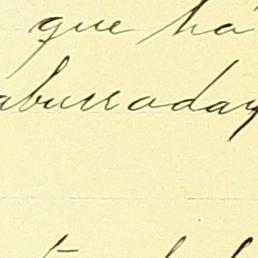 que ha
aburraday